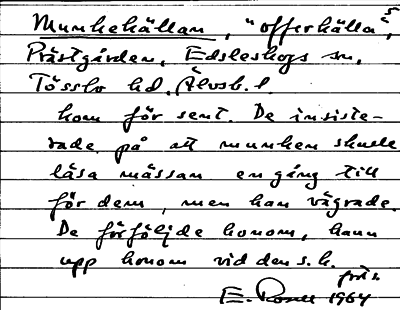 Munkekällan, "offerkälla", 5
Prästgården, Edsleskogs sn,
Tösslo hd. Älvsb. l.
kom för sent. De insiste-
rade på att munken skulle
läsa mässan en gång till
för dem, men han vägrade.
De förföljde honom, hann
upp honom vid den s.k.
fris.
E. Rosell 1964